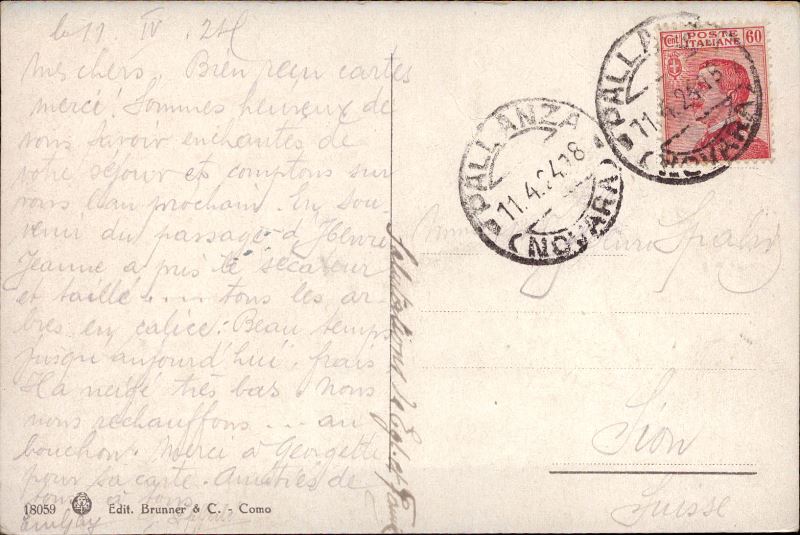 le 11. IV. 24
Mes chers, Bien reçu cartes
merci! Sommes heureux de
vous savoir enchantés de
votre séjour et comptons sur
vous l'an prochain. En sou-
venir du passage d'Henri
Jeanne a pris le sécateur
et taillé .... tous les ar-
bres en calice. Beau temps
jusqu'aujourd'hui. frais
Il a neigé très bas. Nous
nous réchauffons ... au
bouchon. Merci à Georgette
pour sa carte. Amitiés de
tous à tous
18059 Edit. Brunner & C. - Como
Salutations
POSTE ITALIANE
Cent 60
PALLANZA
11.4.24.18
(NOVARA)
PALLANZA
11.4.24.18
(NOVARA)
Henri Spahr
Sion
Suisse